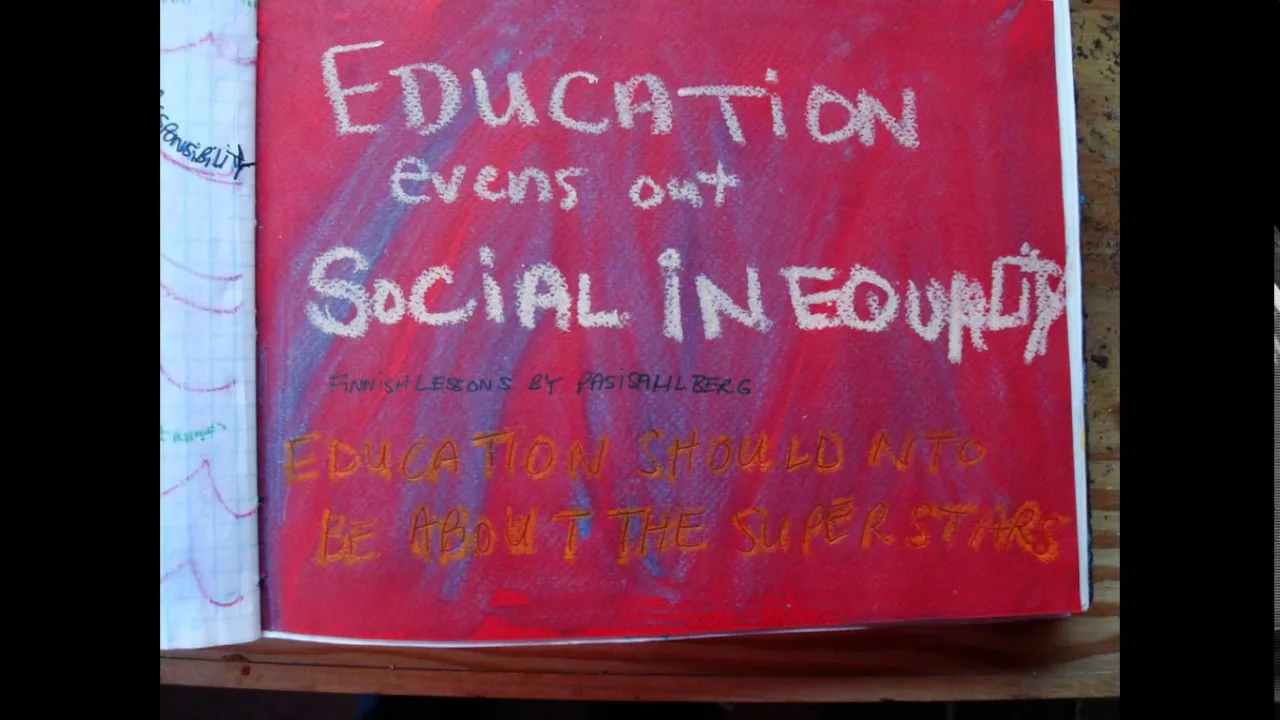 SPONSIBILITY
EDUCATION
evens out
SOCIAL INEQUALITY
FINNISH LESSONS BY PASI SAHLBERG
EDUCATION SHOULD NTO
BE ABOUT THE SUPERSTARS